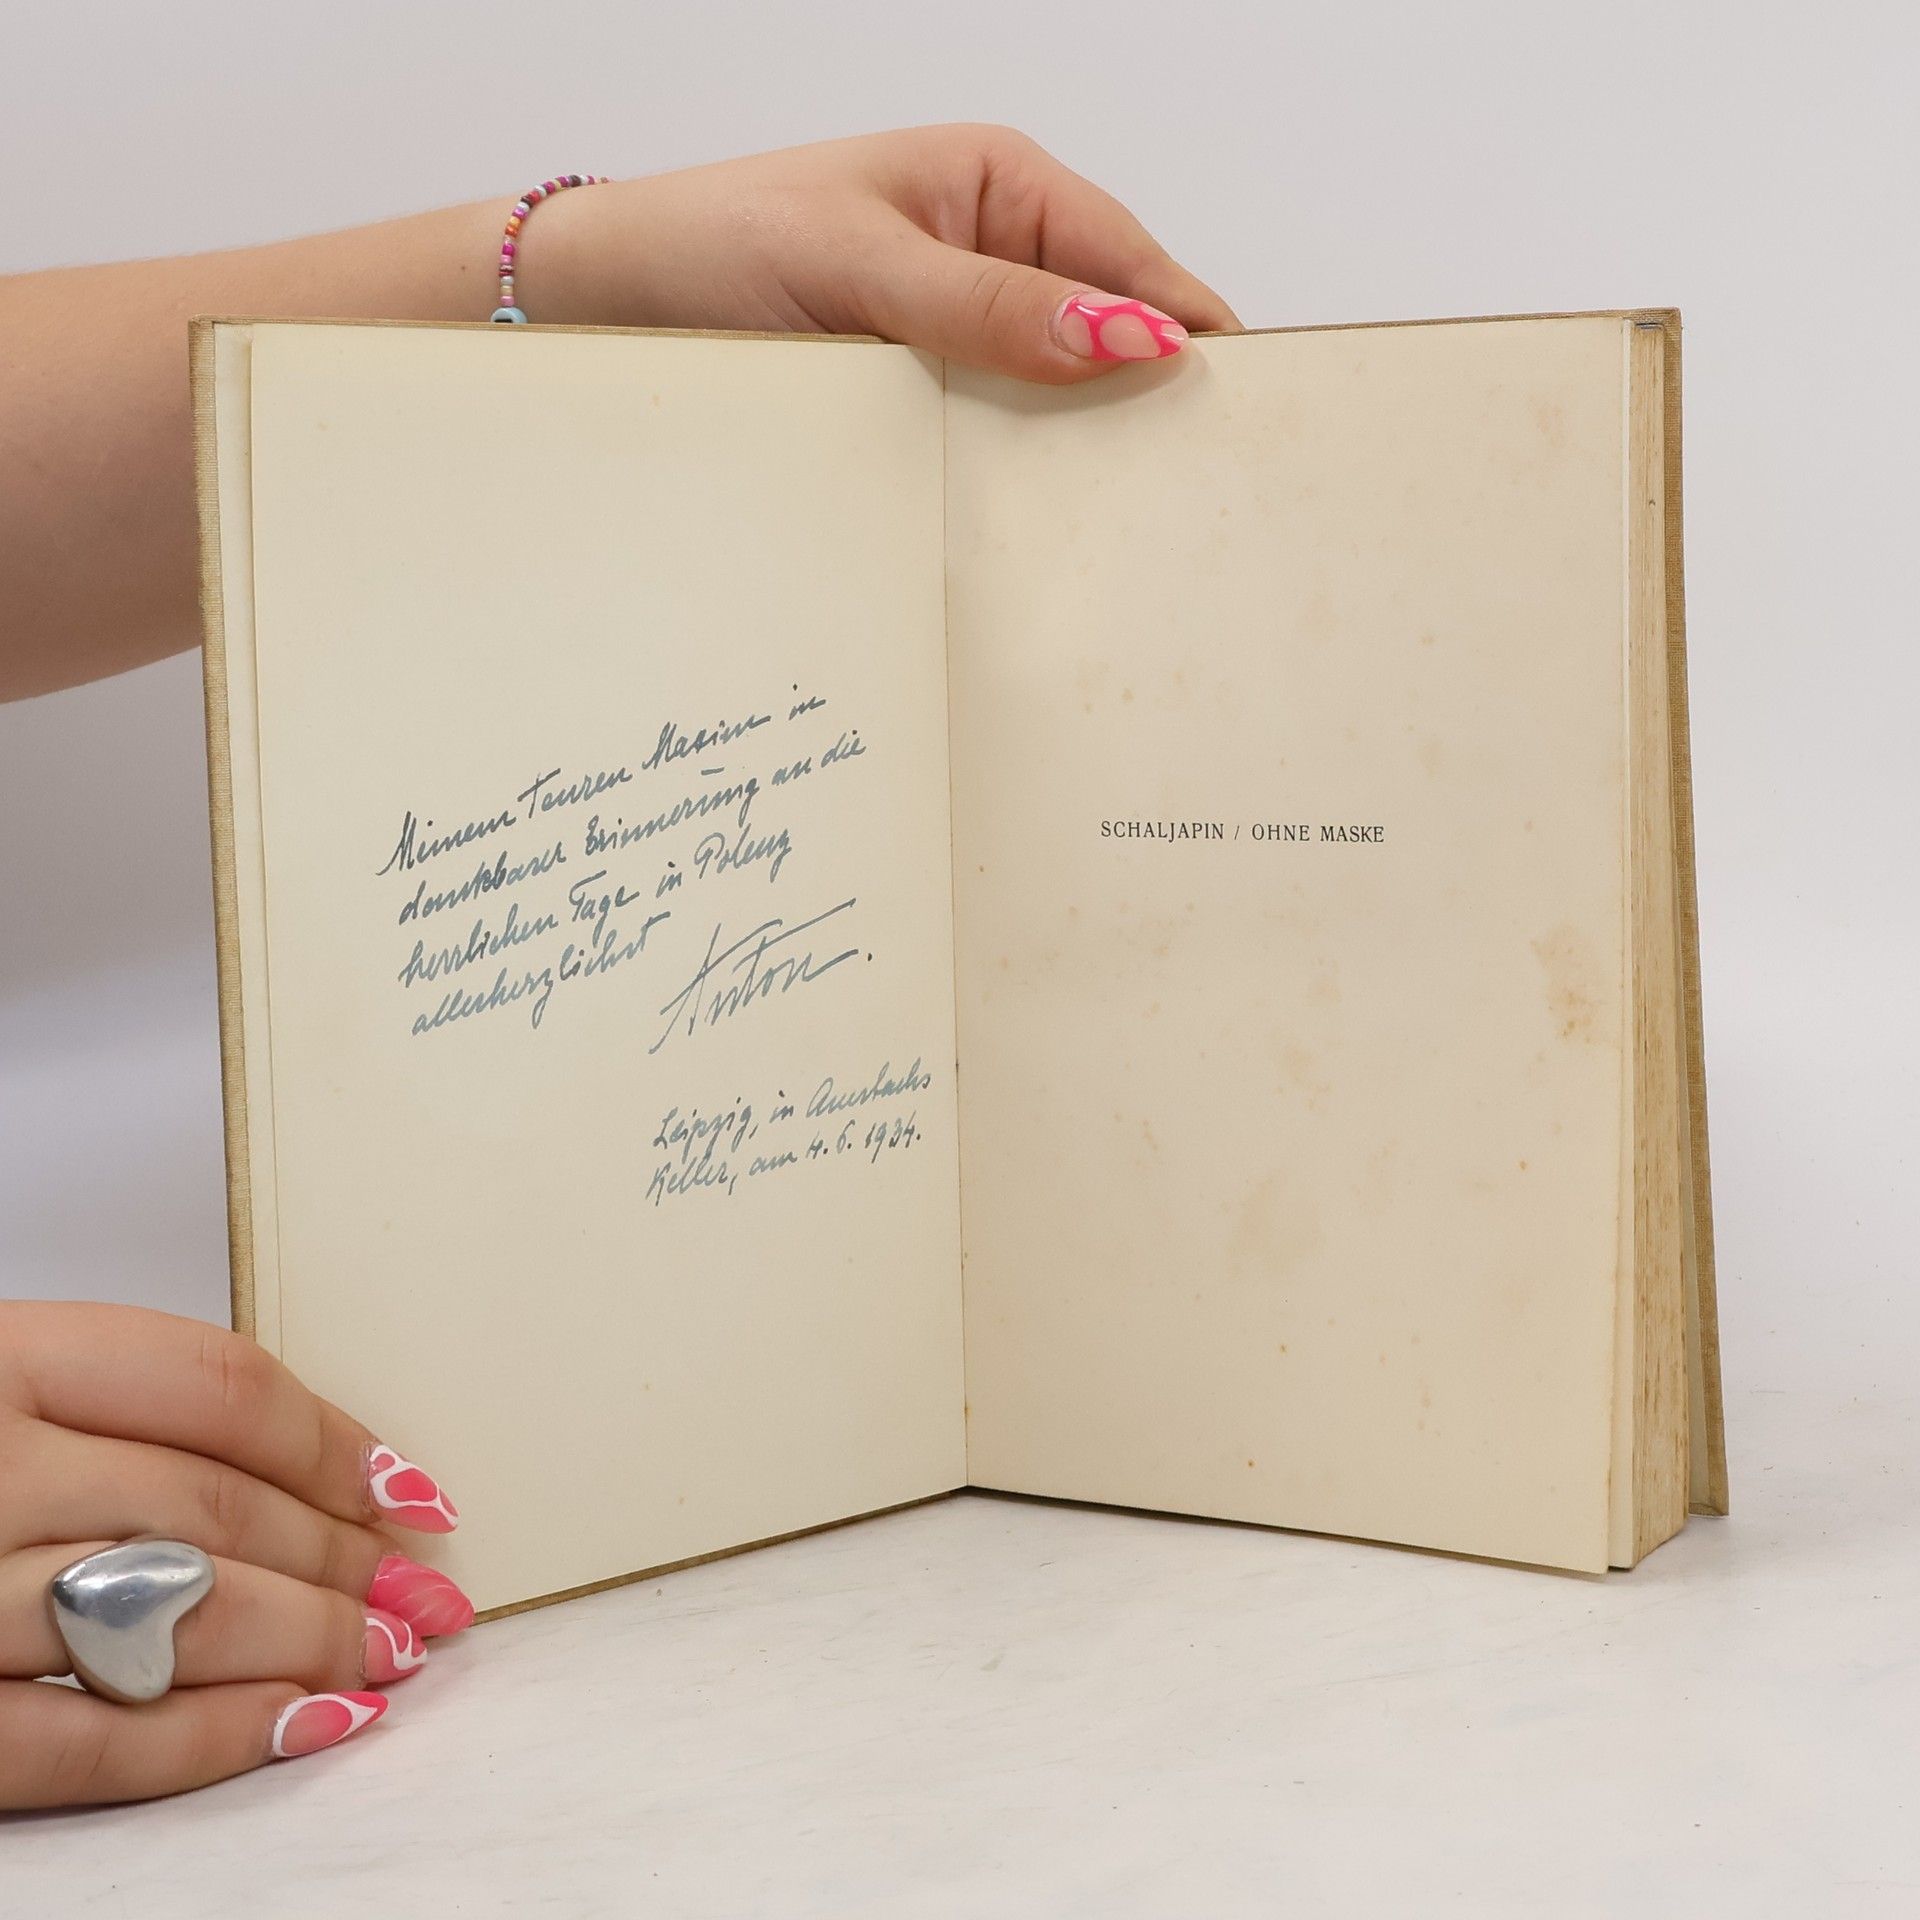 Meinem Teuren Maxim in
dankbarer Erinnerung an die
herrlichen Tage in Polenz
allerherzlichst
Anton.
Leipzig, in Auerbachs
Keller, am 4.6.1934.
SCHALJAPIN / OHNE MASKE